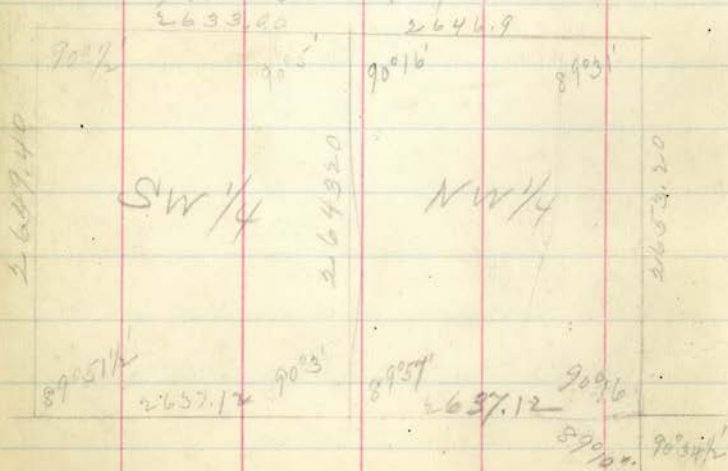 2633.00 2646.9
90°1/2 90°5' 90°16' 89°31'
2649.40
SW 1/4
264320
NW 1/4
2653.20
89°51 1/2' 90°3' 89°57' 90°16
2637.12 2637.12
90°34 1/2'